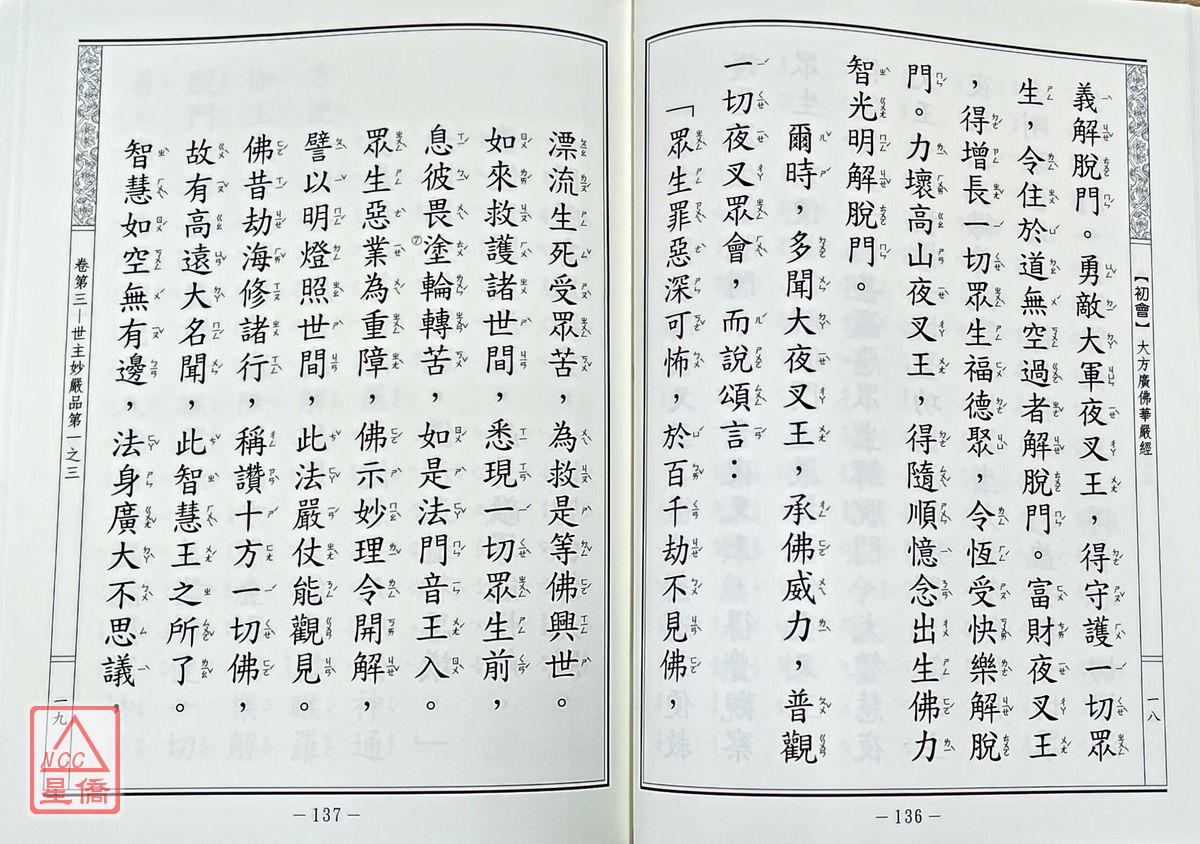 【初會】大方廣佛華嚴經
一八
義解脫門。勇敵大軍夜叉王，得守護一切眾
生，令住於道無空過者解脫門。富財夜叉王
，得增長一切眾生福德聚，令恆受快樂解脫
門。力壞高山夜叉王，得隨順憶念出生佛力
智光明解脫門。
爾時，多聞大夜叉王，承佛威力，普觀
一切夜叉眾會，而說頌言：
「眾生罪惡深可怖，於百千劫不見佛，
－136－
漂流生死受眾苦，為救是等佛興世。
如來救護諸世間，悉現一切眾生前，
息彼畏塗輪轉苦，如是法門音王入。
⑦
眾生惡業為重障，佛示妙理令開解，
譬以明燈照世間，此法嚴仗能觀見。
佛昔劫海修諸行，稱讚十方一切佛，
故有高遠大名聞，此智慧王之所了。
智慧如空無有邊，法身廣大不思議，
卷第三－世主妙嚴品第一之三
一九
－137－
NCC
星僑